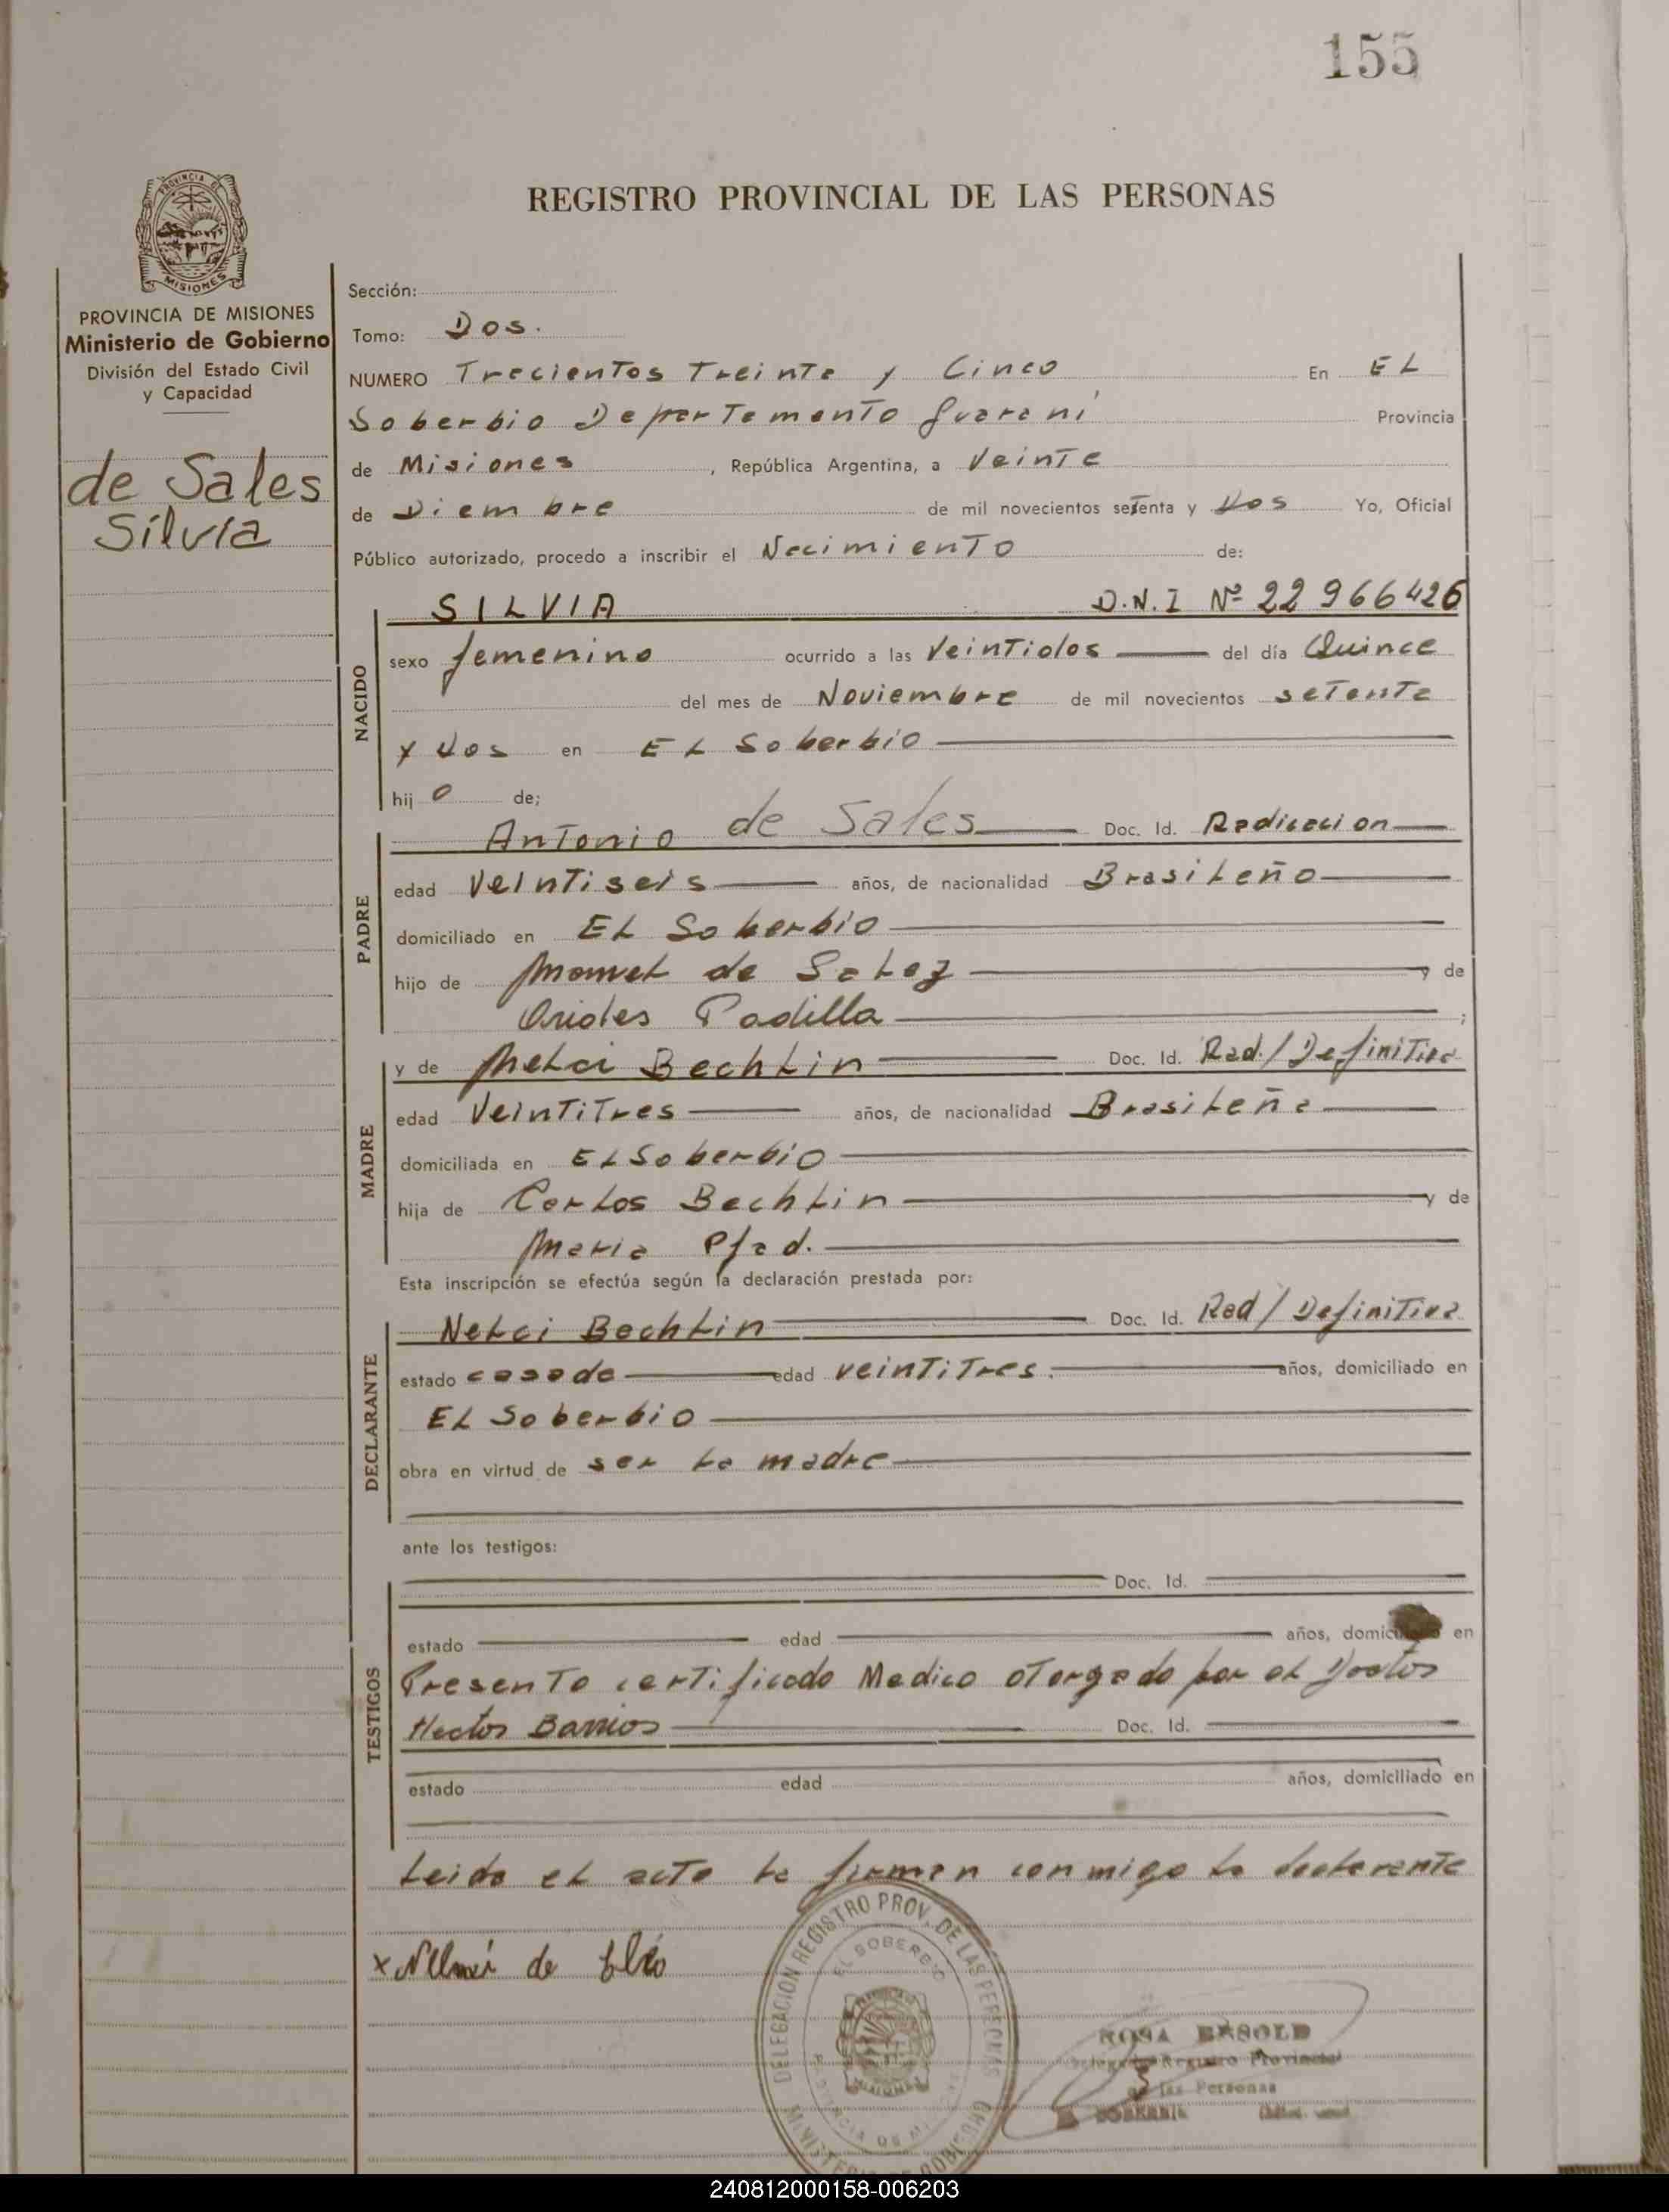 155
REGISTRO PROVINCIAL DE LAS PERSONAS
PROVINCIA DE
MISIONES
PROVINCIA DE MISIONES
Ministerio de Gobierno
División del Estado Civil
y Capacidad
de Sales
Silvia
Sección:
Tomo: Dos.
NUMERO Trecientos Treinta y Cinco En EL
Soberbio Departamento Guarani Provincia
de Misiones, República Argentina, a Veinte
de Diembre de mil novecientos setenta y Dos Yo, Oficial
Público autorizado, procedo a inscribir el Nacimiento de:
NACIDO
SILVIA D.N.I Nº 22 966426
sexo femenino ocurrido a las Veintidos del día Quince
del mes de Noviembre de mil novecientos setenta
y dos en EL Soberbio
hij o de;
PADRE
Antonio de Sales Doc. Id. Radicacion
edad Veintiseis años, de nacionalidad Brasileño
domiciliado en EL Soberbio
hijo de Manuel de Salez y de
Padilla ;
MADRE
y de Bechlin Doc. Id. Rad./Definitiva
edad Veintitres años, de nacionalidad Brasileña
domiciliada en EL Soberbio
hija de Carlos Bechlin y de
Maria Pfad.
Esta inscripción se efectúa según la declaración prestada por:
DECLARANTE
Nelci Bechlin Doc. Id. Rad/Definitiva
estado casada edad veintitres. años, domiciliado en
EL Soberbio
obra en virtud de ser la madre
ante los testigos:
TESTIGOS
Doc. Id.
estado edad años, domiciliado en
Presento certificado Medico otorgado por el Doctor
Hector Barrios Doc. Id.
estado edad años, domiciliado en
Leida el acta la firman conmigo la declarante
x de
DELEGACION REGISTRO PROV. DE LAS PERSONAS
EL SOBERBIO
MISIONES
PROVINCIA DE
MINISTERIO DE GOBIERNO
ROSA
Registro Provincial
de las Personas
240812000158-006203